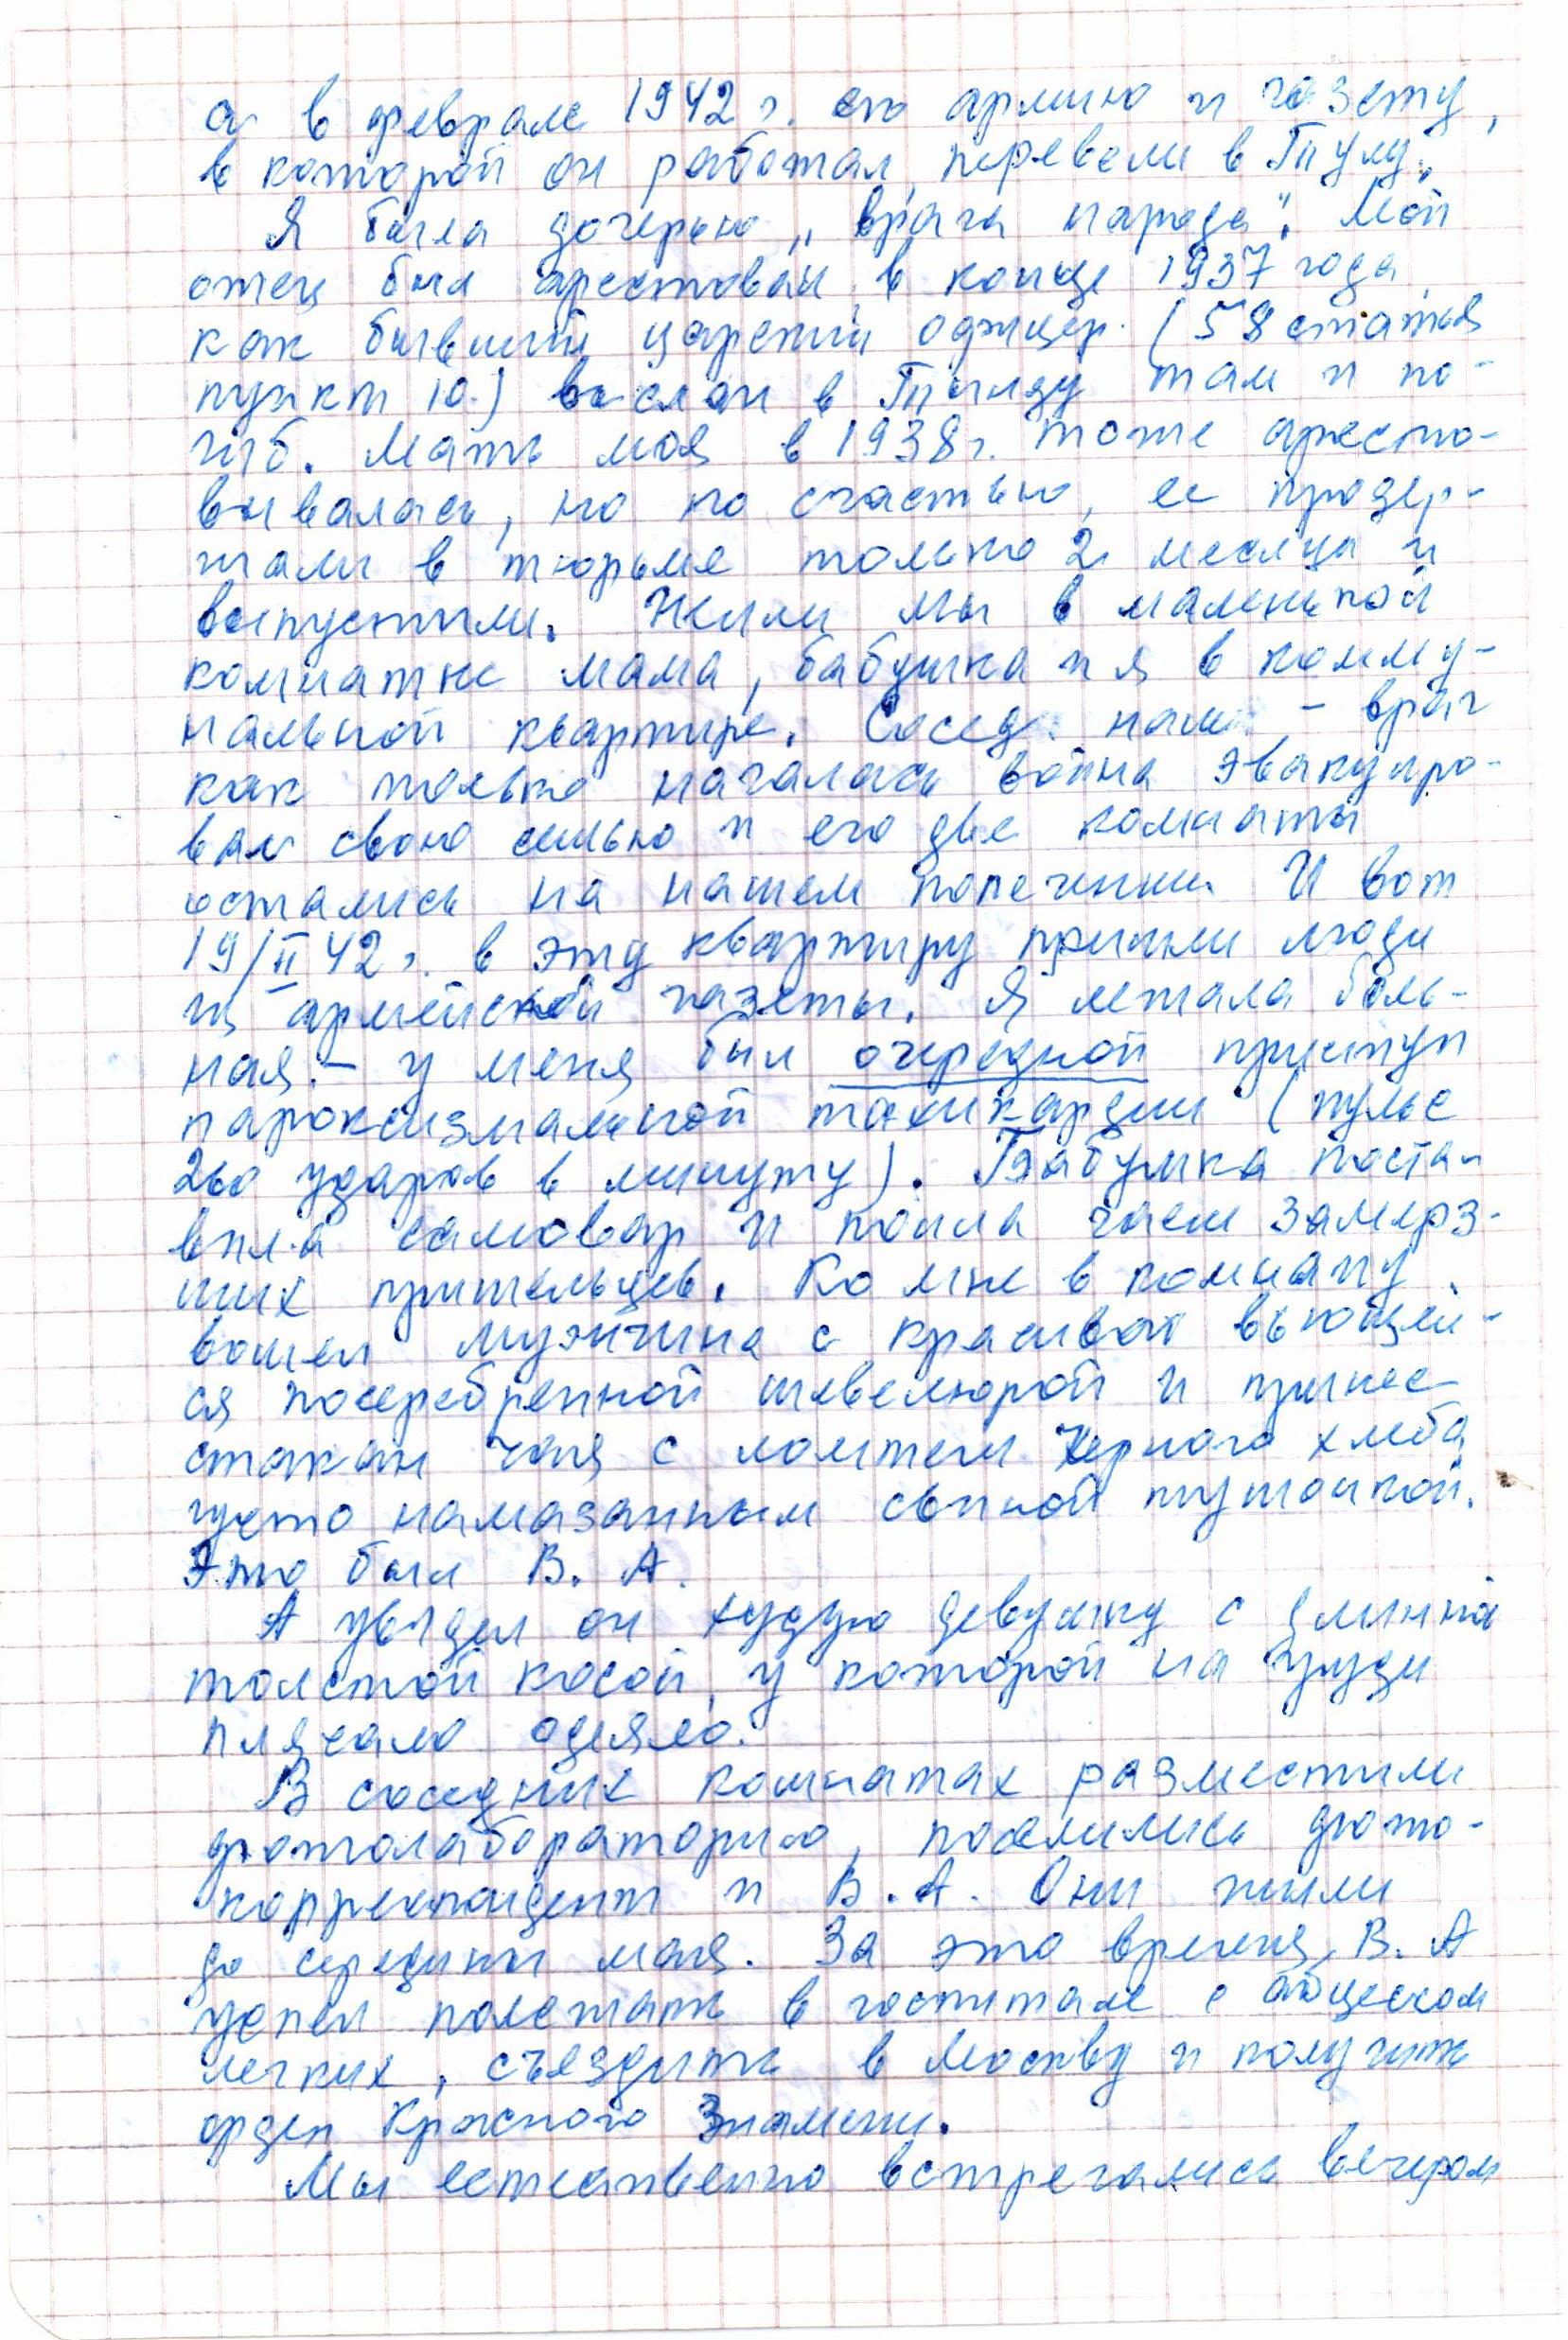 а в феврале 1942 г. его армию и газету,
в которой он работал, перевели в Тулу.
Я была дочерью „врага народа". Мой
отец был арестован в конце 1937 года
как бывший царский офицер. (58 статья
пункт 10.) выслан в Тынду там и по-
гиб. Мать моя в 1938 г. тоже аресто-
вывалась, но по счастью, ее продер-
жали в тюрьме только 2 месяца и
выпустили. Жили мы в маленькой
комнатке мама, бабушка и я в комму-
нальной квартире. Сосед наш - врач
как только началась война эвакуиро-
вал свою семью и его две комнаты
остались на нашем попечении. И вот
19/II 42 г. в эту квартиру пришли люди
из армейской газеты. Я лежала боль-
ная. - у меня был очередной приступ
пароксизмальной тахикардии (пульс
260 ударов в минуту). Бабушка поста-
вила самовар и поила чаем замерз-
ших пришельцев. Ко мне в комнату
вошел мужчина с красивой вьющей-
ся посеребренной шевелюрой и принес
стакан чая с ломтем черного хлеба,
густо намазанным свиной тушонкой.
Это был В. А.
А увидел он худую девушку с длинной
толстой косой, у которой на груди
плясало одеяло.
В соседних комнатах разместили
фотолабораторию, поселились фото-
корреспондент и В. А. Они жили
до середины мая. За это время, В. А
успел полежать в госпитале с абцессом
легких, съездить в Москву и получить
орден Красного Знамени.
Мы естественно встречались вечером